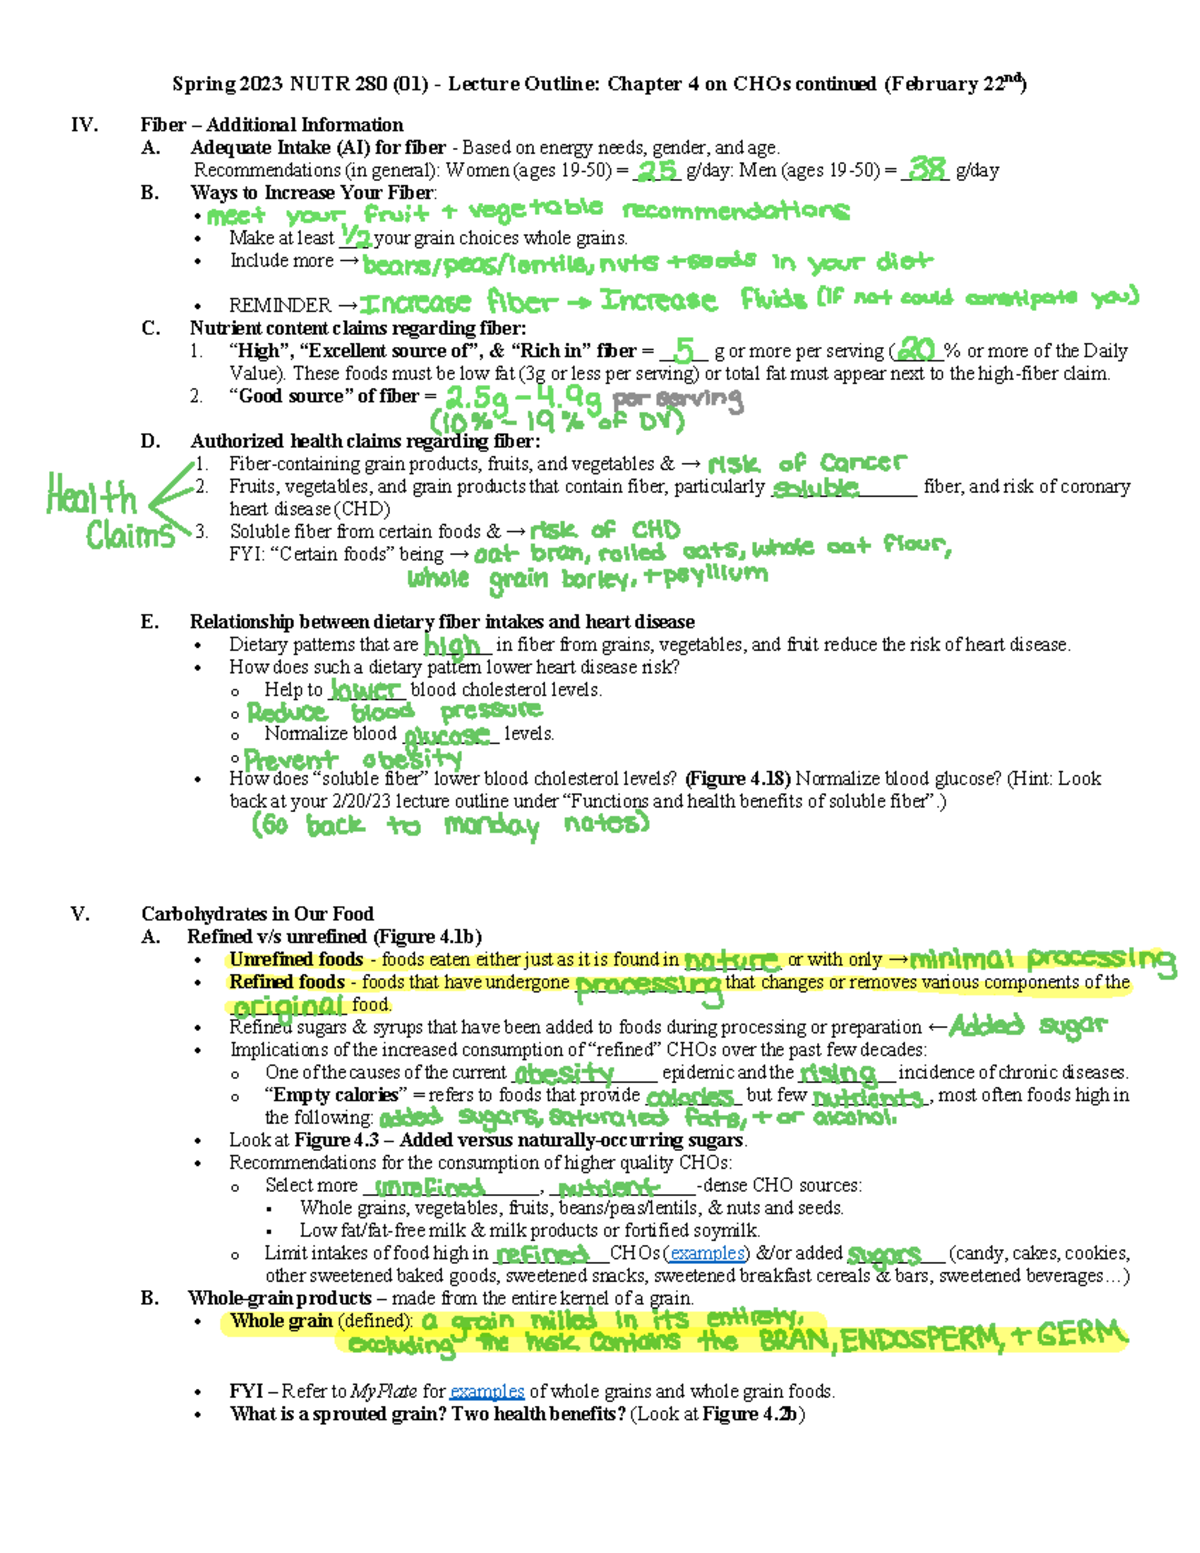 Spring 2023 NUTR 280 (01) - Lecture Outline: Chapter 4 on CHOs continued (February 22nd)
IV. Fiber – Additional Information
A. Adequate Intake (AI) for fiber - Based on energy needs, gender, and age.
Recommendations (in general): Women (ages 19-50) = 25 g/day: Men (ages 19-50) = 38 g/day
B. Ways to Increase Your Fiber:
• meet your fruit + vegetable recommendations
• Make at least 1/2 your grain choices whole grains.
• Include more → beans/peas/lentils, nuts + seeds in your diet
• REMINDER → Increase fiber → Increase fluids (if not could constipate you)
C. Nutrient content claims regarding fiber:
1. “High”, “Excellent source of”, & “Rich in” fiber = 5 g or more per serving (20% or more of the Daily
Value). These foods must be low fat (3g or less per serving) or total fat must appear next to the high-fiber claim.
2. “Good source” of fiber = 2.5g – 4.9g per serving
(10% – 19% of DV)
D. Authorized health claims regarding fiber:
Health Claims
1. Fiber-containing grain products, fruits, and vegetables & → risk of cancer
2. Fruits, vegetables, and grain products that contain fiber, particularly soluble fiber, and risk of coronary
heart disease (CHD)
3. Soluble fiber from certain foods & → risk of CHD
FYI: “Certain foods” being → oat bran, rolled oats, whole oat flour,
whole grain barley, + psyllium
E. Relationship between dietary fiber intakes and heart disease
• Dietary patterns that are high in fiber from grains, vegetables, and fruit reduce the risk of heart disease.
• How does such a dietary pattern lower heart disease risk?
o Help to lower blood cholesterol levels.
o Reduce blood pressure
o Normalize blood glucose levels.
o Prevent obesity
• How does “soluble fiber” lower blood cholesterol levels? (Figure 4.18) Normalize blood glucose? (Hint: Look
back at your 2/20/23 lecture outline under “Functions and health benefits of soluble fiber”.)
(Go back to monday notes)
V. Carbohydrates in Our Food
A. Refined v/s unrefined (Figure 4.1b)
• Unrefined foods - foods eaten either just as it is found in nature or with only → minimal processing
• Refined foods - foods that have undergone processing that changes or removes various components of the
original food.
• Refined sugars & syrups that have been added to foods during processing or preparation ← Added sugar
• Implications of the increased consumption of “refined” CHOs over the past few decades:
o One of the causes of the current obesity epidemic and the rising incidence of chronic diseases.
o “Empty calories” = refers to foods that provide calories but few nutrients, most often foods high in
the following: added sugars, saturated fats, + or alcohol.
• Look at Figure 4.3 – Added versus naturally-occurring sugars.
• Recommendations for the consumption of higher quality CHOs:
o Select more unrefined, nutrient-dense CHO sources:
▪ Whole grains, vegetables, fruits, beans/peas/lentils, & nuts and seeds.
▪ Low fat/fat-free milk & milk products or fortified soymilk.
o Limit intakes of food high in refined CHOs (examples) &/or added sugars (candy, cakes, cookies,
other sweetened baked goods, sweetened snacks, sweetened breakfast cereals & bars, sweetened beverages…)
B. Whole-grain products – made from the entire kernel of a grain.
• Whole grain (defined): a grain milled in its entirety,
excluding the husk. Contains the BRAN, ENDOSPERM, + GERM
• FYI – Refer to MyPlate for examples of whole grains and whole grain foods.
• What is a sprouted grain? Two health benefits? (Look at Figure 4.2b)